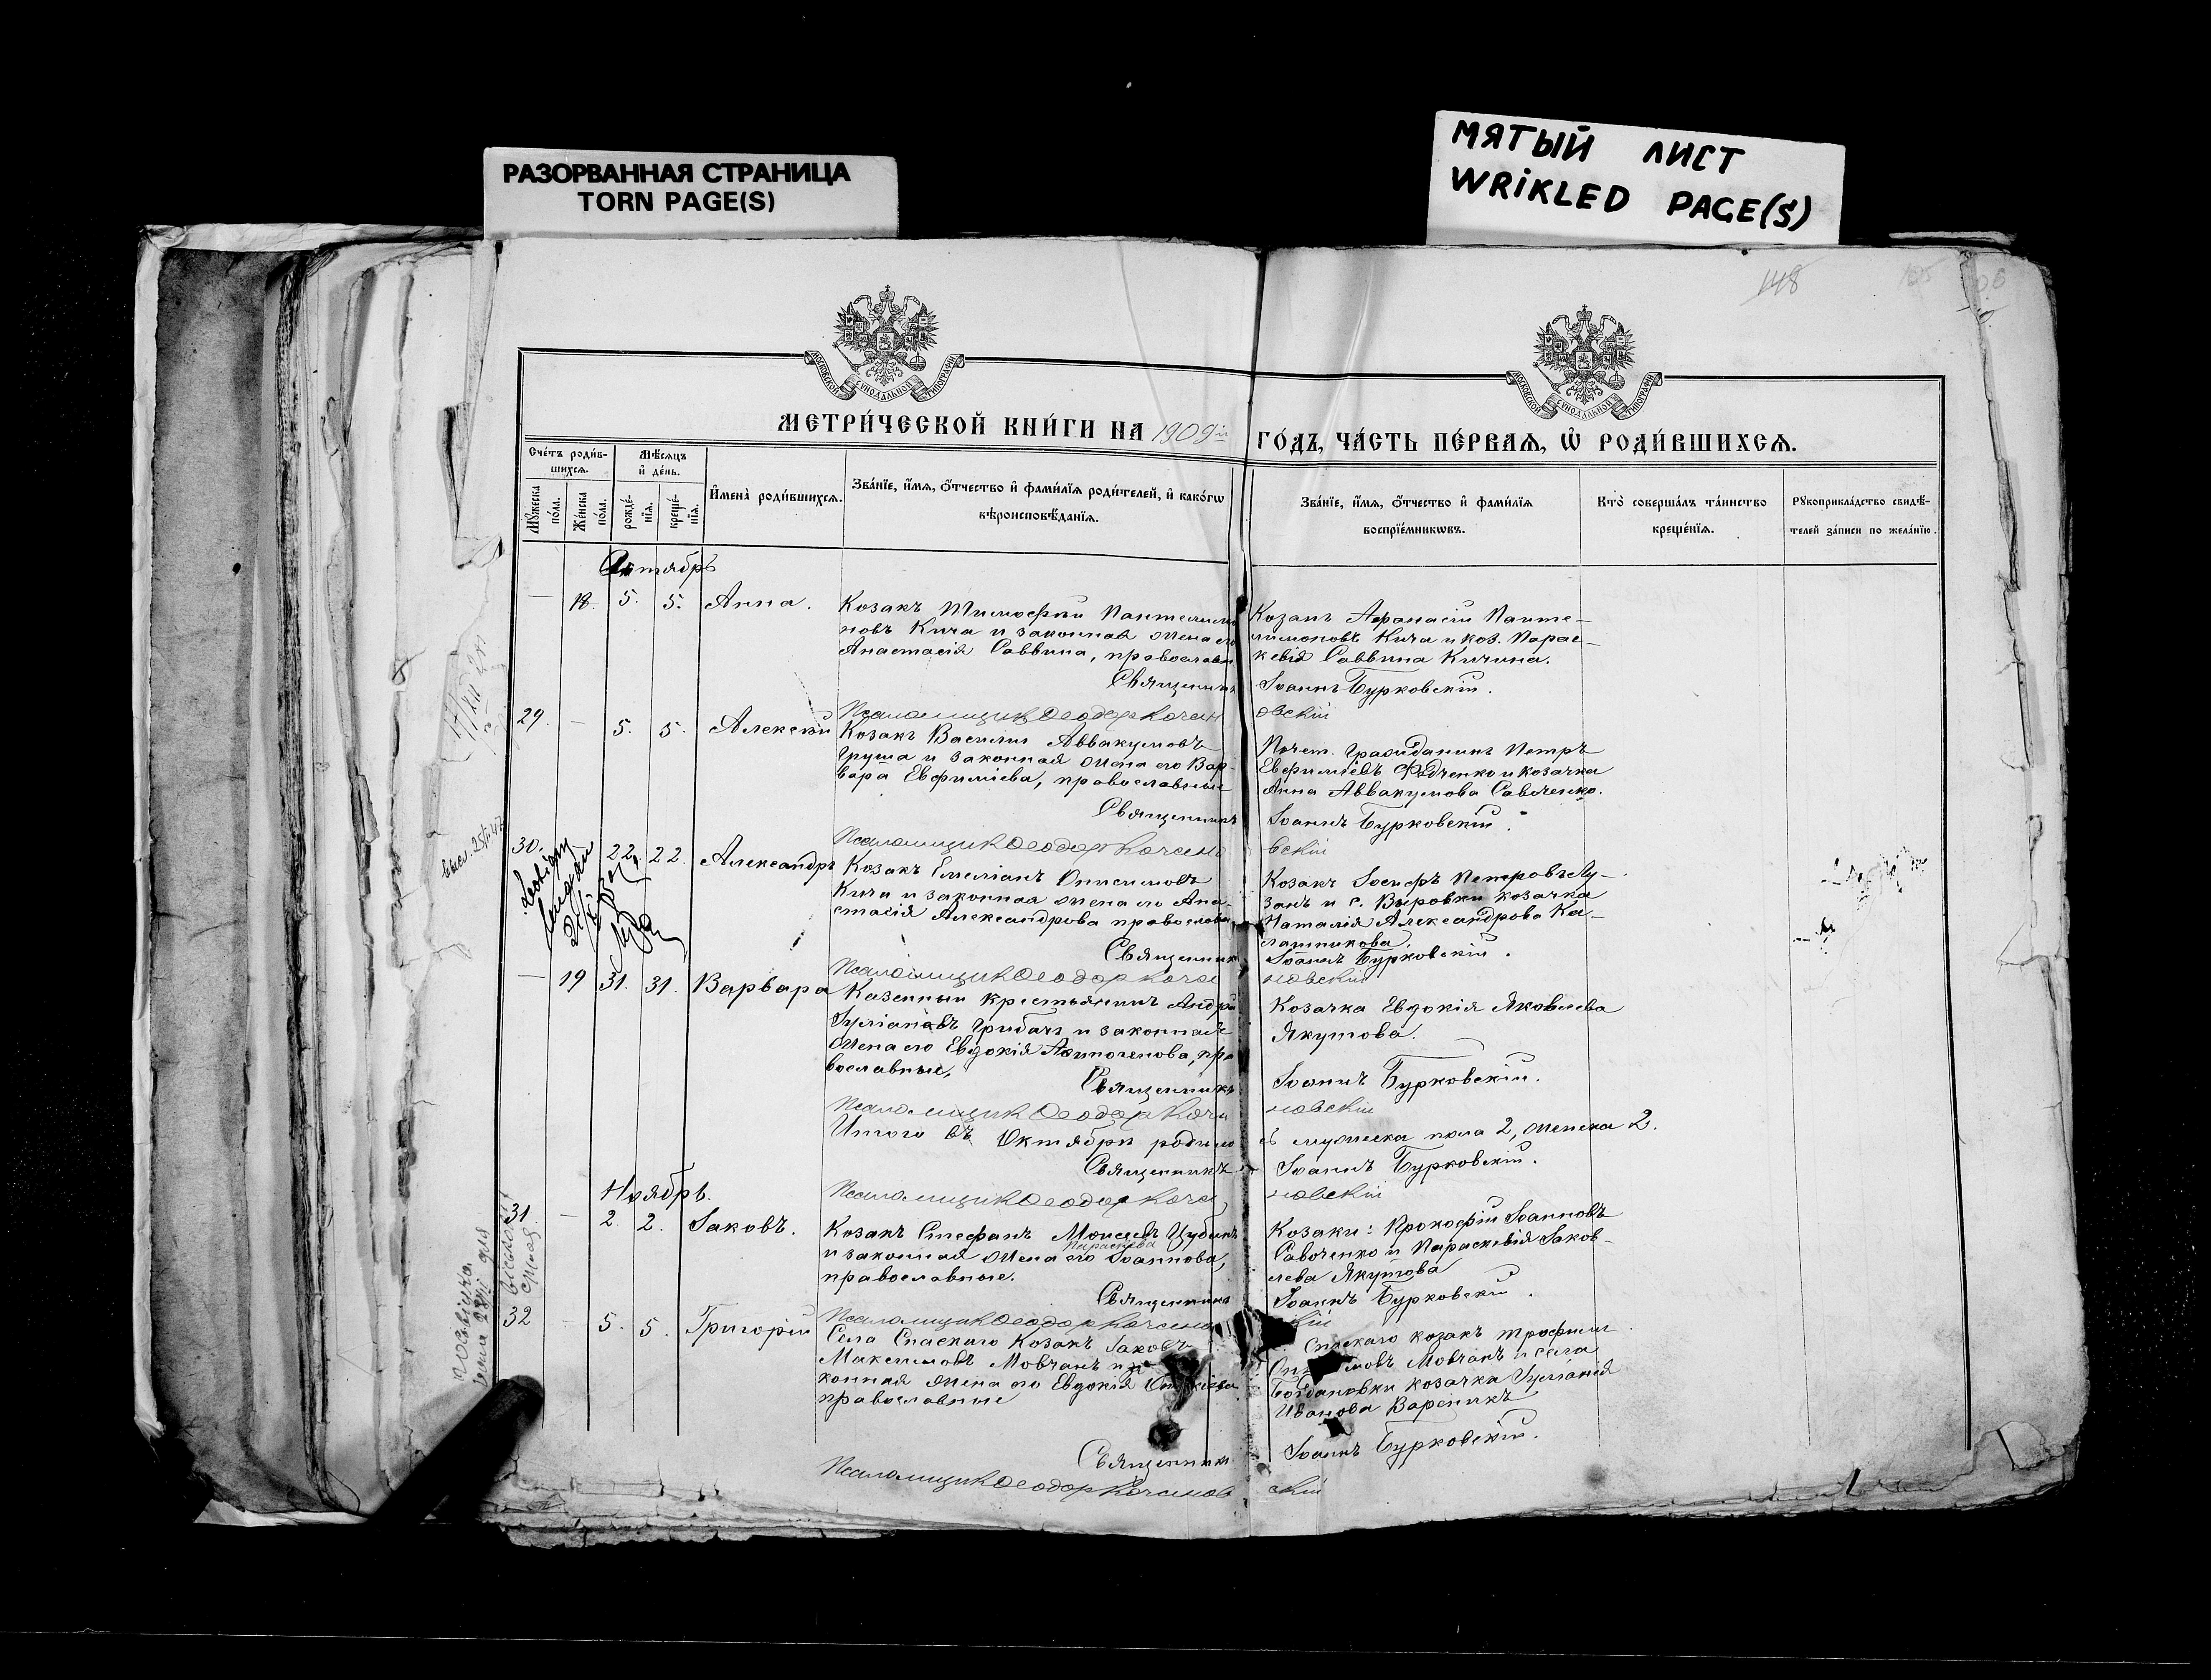 РАЗОРВАННАЯ СТРАНИЦА
TORN PAGE(S)
МЯТЫЙ ЛИСТ
WRiKLED PAGE(S)
148
МОСКОВСКОЙ СѴНОДАЛЬНОЙ ТИПОГРАФІИ
МОСКОВСКОЙ СѴНОДАЛЬНОЙ ТИПОГРАФІИ
МЕТРИ́ЧЕСКОЙ КНИ́ГИ НА 1909й ГО́ДЪ, ЧА́СТЬ ПЕ́РВАѦ, Ѽ РОДИ́ВШИХСѦ.
Сче́тъ роди́в-
шихсѧ.
Мꙋ́жеска по́ла.
Же́нска по́ла.
Мѣ́сѧцъ
и҆ де́нь.
рожде́-
нїѧ.
креще́-
нїѧ.
И҆мена̀ роди́вшихсѧ.
Зва́нїе, и҆́мѧ, ѻ҆́тчество и҆ фами́лїѧ роди́телей, и҆ како́гѡ
вѣроисповѣ́данїѧ.
Зва́нїе, и҆́мѧ, ѻ҆́тчество и҆ фами́лїѧ
воспрїе́мникѡвъ.
Кто̀ соверша́лъ та́инство
креще́нїѧ.
Рꙋкоприкла́дство свидѣ́-
телей за́писи по жела́нїю.
Октябрь
— 18. 5. 5. Анна.
Козакъ Тимофей Пантелимо
новъ Кича и законная жена его
Анастасія Саввина, православн
Козакъ Афанасій Панте-
лимоновъ Кича и коз. Парас-
кевія Саввина Кичина.
Священникъ Іоаннъ Бурковскій.
Псаломщик Ѳеодор Кочановскій
29. — 5. 5. Алексѣй
Козакъ Василій Аввакумовъ
Груша и законная жена его Вар-
вара Евфиміева, православные
Почет. Гражданинъ Петръ
Евфиміевъ Фадченко и козачка
Анна Аввакумова Савченко.
Священникъ Іоаннъ Бурковскій.
Псаломщик Ѳеодор Кочановскій
30. 22. 22. Александръ
Козакъ Емеліанъ Онисимовъ
Кича и законная жена его Ана-
стасія Александрова православн
Козакъ Іосифъ Петровъ Лу-
занъ и с. Выровки козачка
Наталія Александрова Ка-
лашникова.
Священник Іоаннъ Бурковскій.
Псаломщик Ѳеодор Кочановскій
— 19 31. 31. Варвара
Казенный крестьянинъ Андрей
Іуліановъ Грибачъ и законная
жена его Евдокія Автогенова, пра
вославные,
Козачка Евдокія Яковлева
Якутова.
Священникъ Іоаннъ Бурковскій.
Псаломщик Ѳеодор Кочановскій
Итого въ Октябрѣ родилось мужеска пола 2, женска 2.
Священникъ Іоаннъ Бурковскій.
Псаломщик Ѳеодор Кочановскій
Ноябрь.
31. — 2. 2. Іаковъ.
Козакъ Стефанъ Моисеевъ Цубинъ
Параскева
и законная жена его Іоаннова,
православные.
Козаки: Прокофій Іоанновъ
Савченко и Параскевія Іаков-
лева Якутова
Священникъ Іоаннъ Бурковскій.
Псаломщик Ѳеодор Кочановскій
32 — 5. 5. Григорій
Села Спаскаго Козакъ Іаковъ
Максимовъ Мовчанъ и за
конная жена его Евдокія
православные
Спаскаго козакъ Трофимъ
Мовчанъ и села
Богдановки козачка Іуліанія
Иванова Вареникъ
Священникъ Іоаннъ Бурковскій.
Псаломщик Ѳеодор Кочановскій